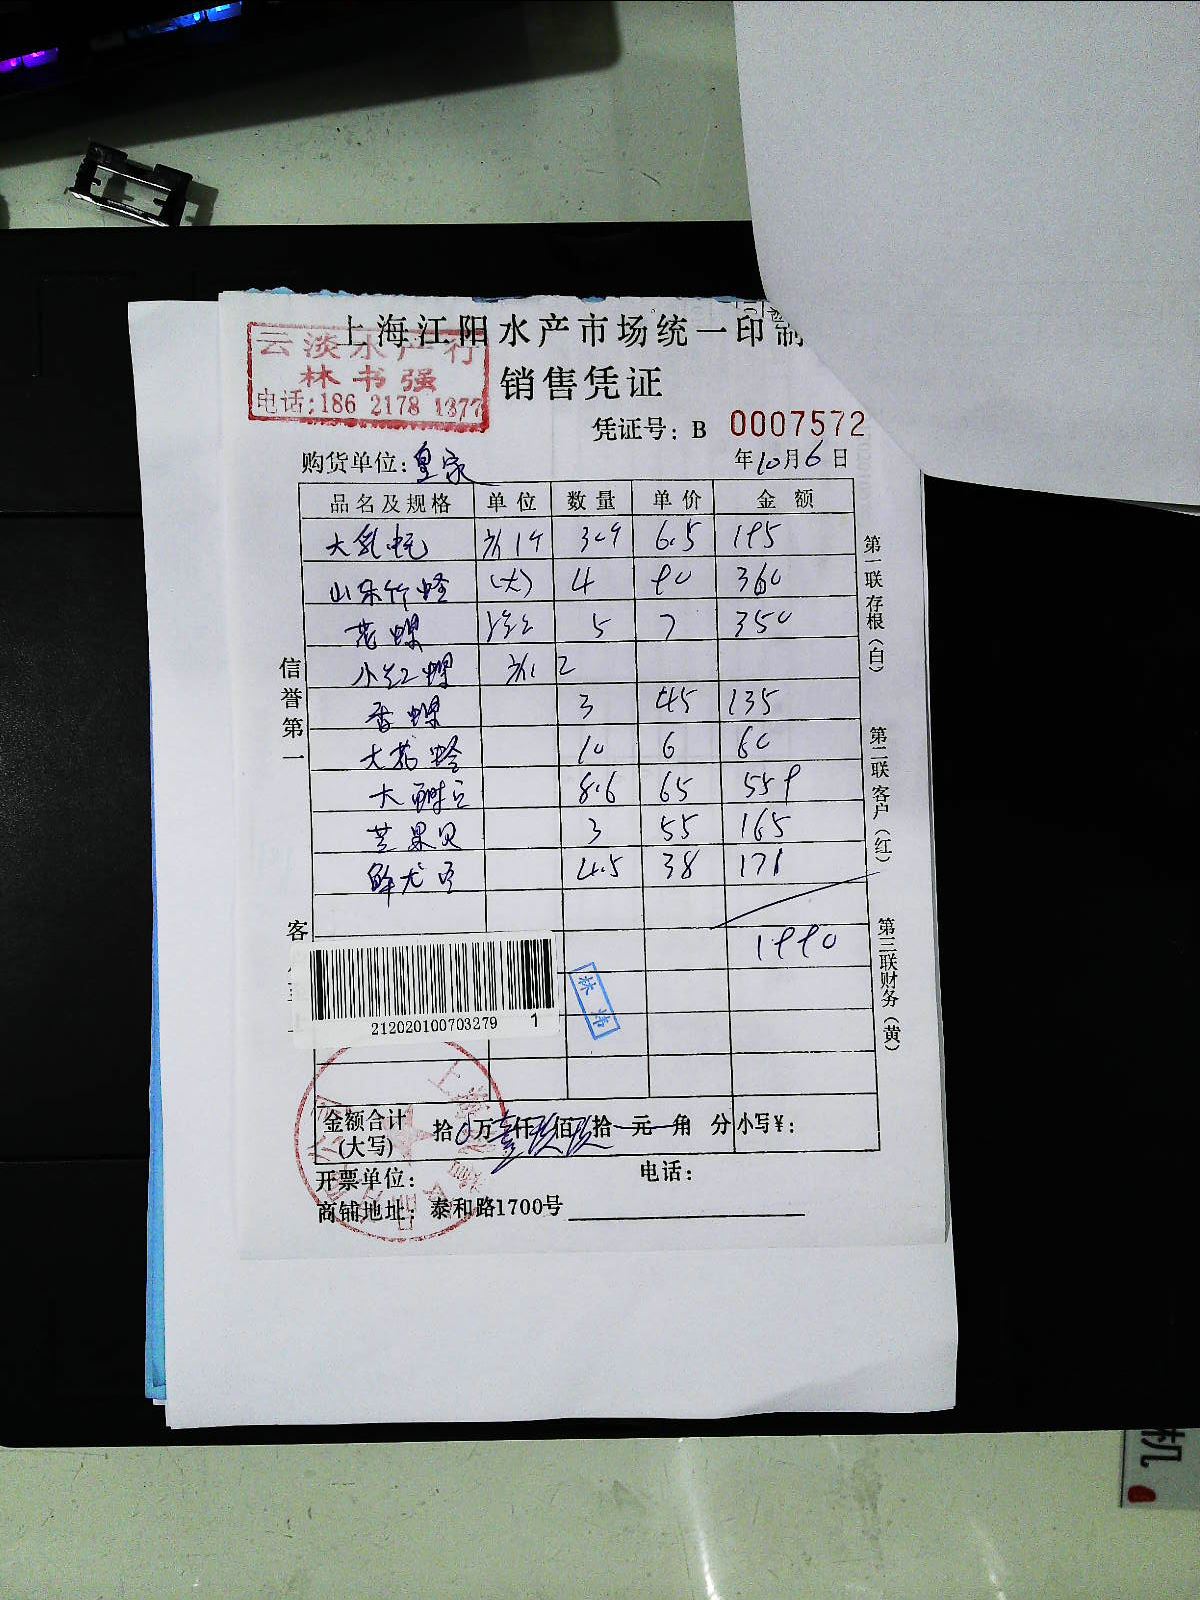 上海江阳水产市场统一印制
云淡水产行
林书强
电话:186 2178 1377
销售凭证
凭证号: B 0007572
购货单位: 皇家 年10月6日
品名及规格 单位 数量 单价 金额
大乳蚝 309 6.5 195
山东竹蛏 (大) 4 90 360
花螺 5 7 350
小红螺 2
香螺 3 45 135
大花蛤 10 6 60
大 8.6 65 559
芒果贝 3 55 165
鲜 4.5 38 171
1990
信誉第一
客
第一联存根(白)
第二联客户(红)
第三联财务(黄)
212020100703279 1
金额合计(大写) 拾0万壹仟玖佰玖拾元角分 小写¥:
开票单位: 电话:
商铺地址: 泰和路1700号
机